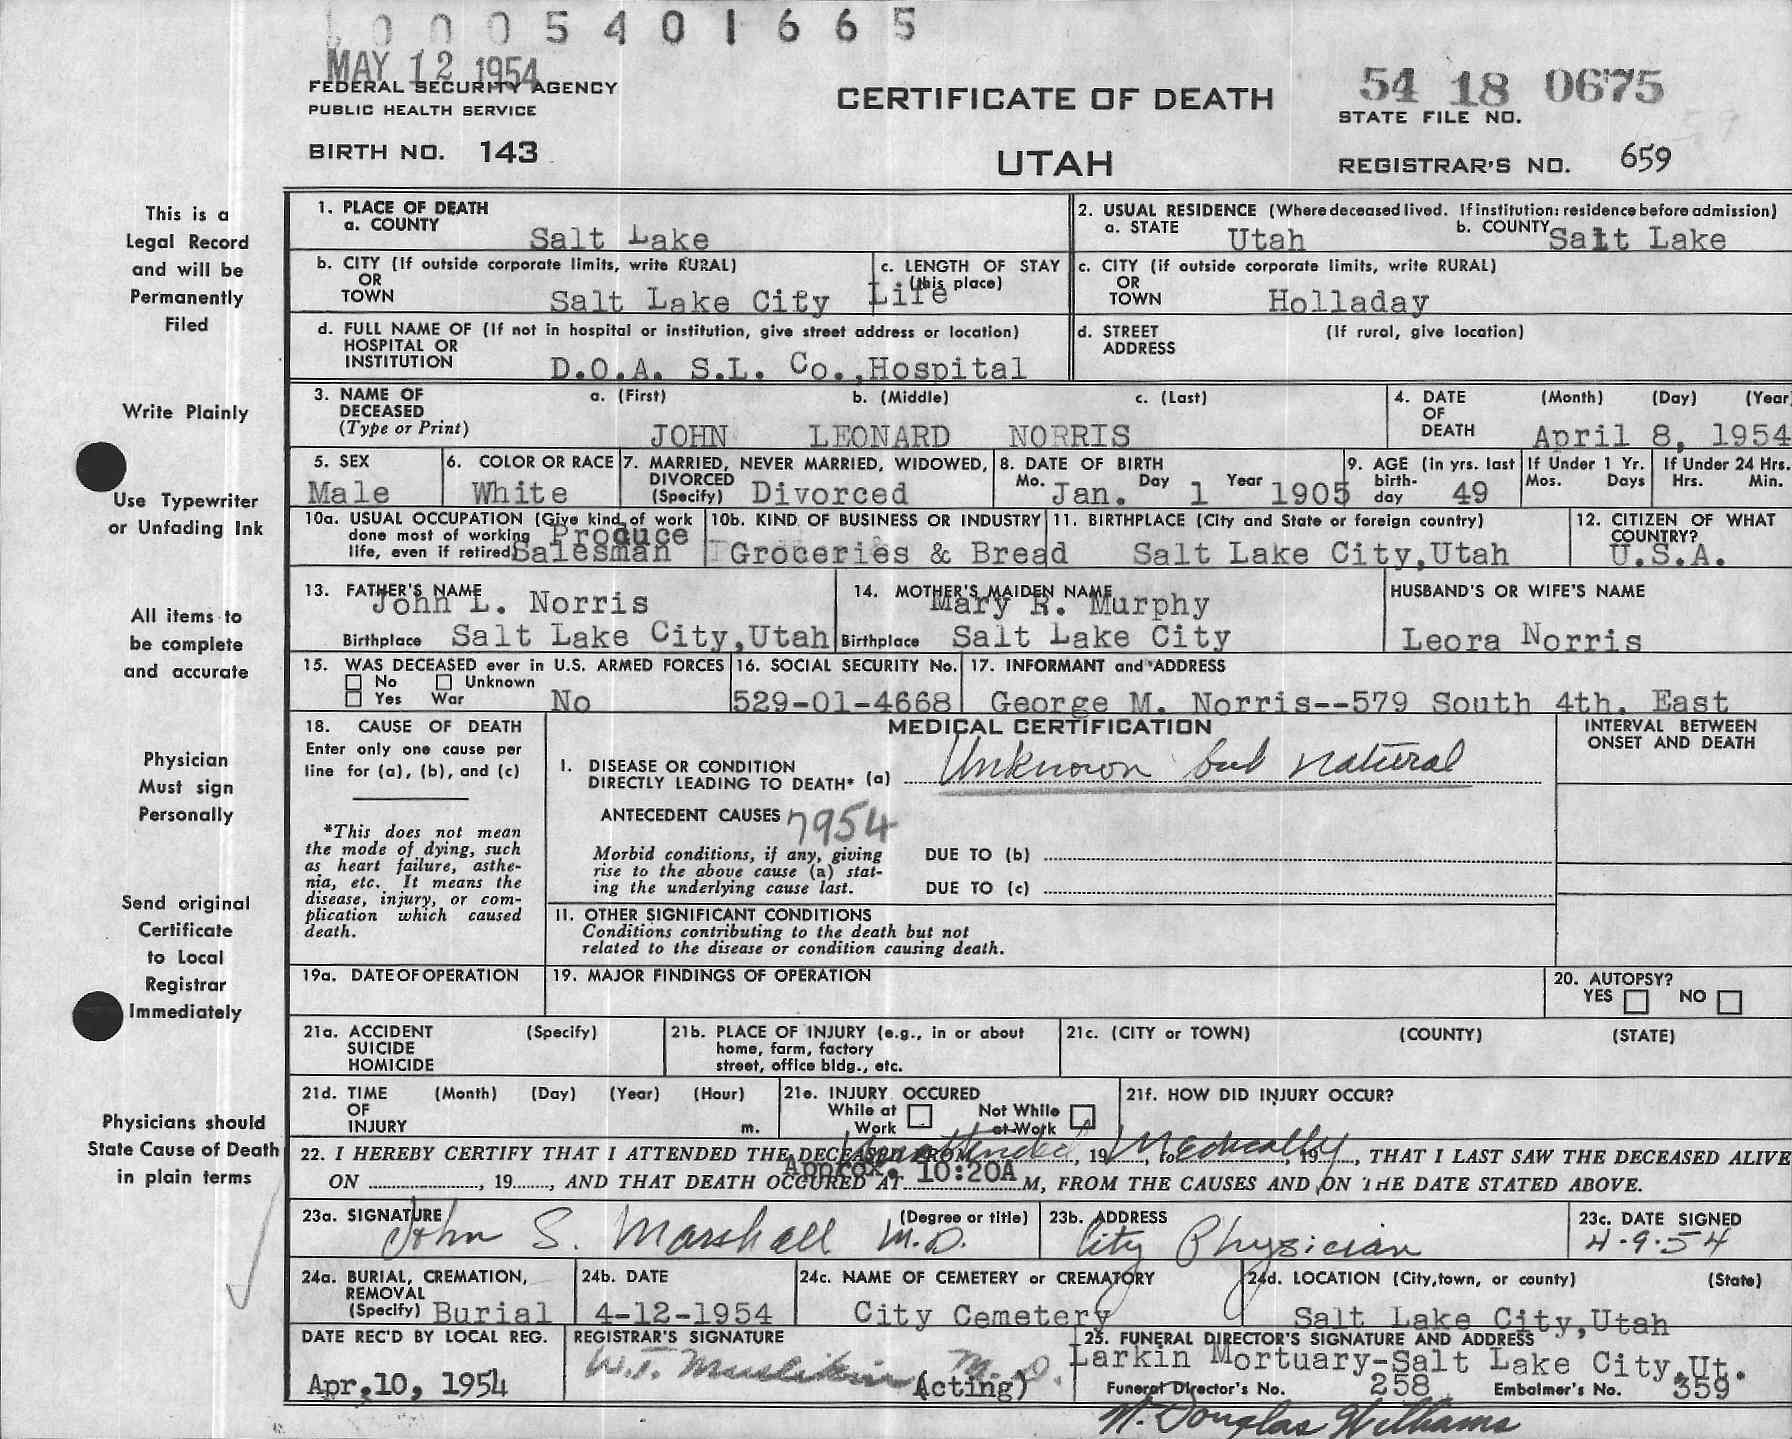 0005401665
MAY 12 1954
FEDERAL SECURITY AGENCY
PUBLIC HEALTH SERVICE
BIRTH NO. 143
CERTIFICATE OF DEATH
UTAH
54 18 0675
STATE FILE NO.
REGISTRAR'S NO. 659
This is a
Legal Record
and will be
Permanently
Filed
Write Plainly
Use Typewriter
or Unfading Ink
All items to
be complete
and accurate
Physician
Must sign
Personally
Send original
Certificate
to Local
Registrar
Immediately
Physicians should
State Cause of Death
in plain terms
1. PLACE OF DEATH
a. COUNTY Salt Lake
2. USUAL RESIDENCE (Where deceased lived. If institution: residence before admission)
a. STATE Utah b. COUNTY Salt Lake
b. CITY (If outside corporate limits, write RURAL)
OR
TOWN Salt Lake City
c. LENGTH OF STAY
(this place)
Life
c. CITY (if outside corporate limits, write RURAL)
OR
TOWN Holladay
d. FULL NAME OF (If not in hospital or institution, give street address or location)
HOSPITAL OR
INSTITUTION D.O.A. S.L. Co.,Hospital
d. STREET (If rural, give location)
ADDRESS
3. NAME OF a. (First) b. (Middle) c. (Last)
DECEASED
(Type or Print) JOHN LEONARD NORRIS
4. DATE (Month) (Day) (Year)
OF
DEATH April 8, 1954
5. SEX
Male
6. COLOR OR RACE
White
7. MARRIED, NEVER MARRIED, WIDOWED,
DIVORCED
(Specify) Divorced
8. DATE OF BIRTH
Mo. Jan. Day 1 Year 1905
9. AGE (In yrs. last
birth-
day 49
If Under 1 Yr.
Mos. Days
If Under 24 Hrs.
Hrs. Min.
10a. USUAL OCCUPATION (Give kind of work
done most of working Produce
life, even if retired) Salesman
10b. KIND OF BUSINESS OR INDUSTRY
Groceries & Bread
11. BIRTHPLACE (City and State or foreign country)
Salt Lake City,Utah
12. CITIZEN OF WHAT
COUNTRY?
U.S.A.
13. FATHER'S NAME
John L. Norris
Birthplace Salt Lake City,Utah
14. MOTHER'S MAIDEN NAME
Mary R. Murphy
Birthplace Salt Lake City
HUSBAND'S OR WIFE'S NAME
Leora Norris
15. WAS DECEASED ever in U.S. ARMED FORCES
No Unknown
Yes War No
16. SOCIAL SECURITY No.
529-01-4668
17. INFORMANT and ADDRESS
George M. Norris--579 South 4th. East
18. CAUSE OF DEATH
Enter only one cause per
line for (a), (b), and (c)
*This does not mean
the mode of dying, such
as heart failure, asthe-
nia, etc. It means the
disease, injury, or com-
plication which caused
death.
MEDICAL CERTIFICATION
I. DISEASE OR CONDITION
DIRECTLY LEADING TO DEATH* (a) Unknown but natural
ANTECEDENT CAUSES 7954
Morbid conditions, if any, giving
rise to the above cause (a) stat-
ing the underlying cause last.
DUE TO (b)
DUE TO (c)
II. OTHER SIGNIFICANT CONDITIONS
Conditions contributing to the death but not
related to the disease or condition causing death.
INTERVAL BETWEEN
ONSET AND DEATH
19a. DATE OF OPERATION
19. MAJOR FINDINGS OF OPERATION
20. AUTOPSY?
YES NO
21a. ACCIDENT (Specify)
SUICIDE
HOMICIDE
21b. PLACE OF INJURY (e.g., in or about
home, farm, factory
street, office bldg., etc.
21c. (CITY or TOWN) (COUNTY) (STATE)
21d. TIME (Month) (Day) (Year) (Hour)
OF
INJURY m.
21e. INJURY OCCURED
While at Not While
Work at Work
21f. HOW DID INJURY OCCUR?
Unattended Medically
22. I HEREBY CERTIFY THAT I ATTENDED THE DECEASED FROM, 19, to, 19, THAT I LAST SAW THE DECEASED ALIVE
Approx. 10:20A
ON, 19, AND THAT DEATH OCCURED AT M, FROM THE CAUSES AND ON THE DATE STATED ABOVE.
23a. SIGNATURE (Degree or title)
John S. Marshall M.D.
23b. ADDRESS
City Physician
23c. DATE SIGNED
4-9-54
24a. BURIAL, CREMATION,
REMOVAL
(Specify) Burial
24b. DATE
4-12-1954
24c. NAME OF CEMETERY or CREMATORY
City Cemetery
24d. LOCATION (City,town, or county) (State)
Salt Lake City,Utah
DATE REC'D BY LOCAL REG.
Apr.10, 1954
REGISTRAR'S SIGNATURE
M.D.
(Acting)
25. FUNERAL DIRECTOR'S SIGNATURE AND ADDRESS
Larkin Mortuary-Salt Lake City,Ut.
Funeral Director's No. 258 Embalmer's No. 359
W. Douglas Williams